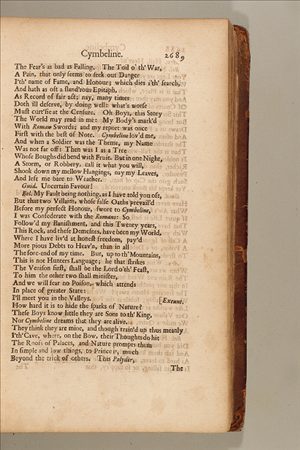 Cymbeline. 2689
The Fear's as bad as Falling. The Toil o' th' War,
A Pain, that only seems to seek out Danger
I'th' name of Fame, and Honour; which dies i'th' search,
And hath as oft a sland'rous Epitaph,
As Record of fair act; nay, many times
Doth ill deserve, by doing well: what's worse
Must curt'sie at the Censure. Oh Boys, this Story
The World may read in me: My Body's mark'd
With Roman Swords; and my report was once
First with the best of Note. Cymbeline lov'd me,
And when a Soldier was the Theme, my Name
Was not far off: Then was I as a Tree
Whose Boughs did bend with Fruit. But in one Night,
A Storm, or Robbery, call it what you will,
Shook down my mellow Hangings, nay my Leaves,
And left me bare to Weather.
Guid. Uncertain Favour!
Bel. My Fault being nothing, as I have told you oft,
But that two Villains, whose false Oaths prevail'd
Before my perfect Honour, swore to Cymbeline,
I was Confederate with the Romans: So
Follow'd my Banishment, and this Twenty years,
This Rock, and these Demesnes, have been my World,
Where I have liv'd at honest freedom, pay'd
More pious Debts to Heav'n, than in all
The fore-end of my time. But, up to th' Mountains,
This is not Hunters Language; he that strikes
The Venison first, shall be the Lord o'th' Feast,
To him the other two shall minister,
And we will fear no Poison, which attends
In place of greater State:
I'll meet you in the Valleys. [Exeunt.
How hard it is to hide the sparks of Nature!
These Boys know little they are Sons to th' King,
Nor Cymbeline dreams that they are alive.
They think they are mine, and though train'd up thus meanly
I'th' Cave, where, on the Bow, their Thoughts do hit
The Roofs of Palaces, and Nature prompts them
In simple and low things, to Prince it, much
Beyond the trick of others. This Polydor,
The